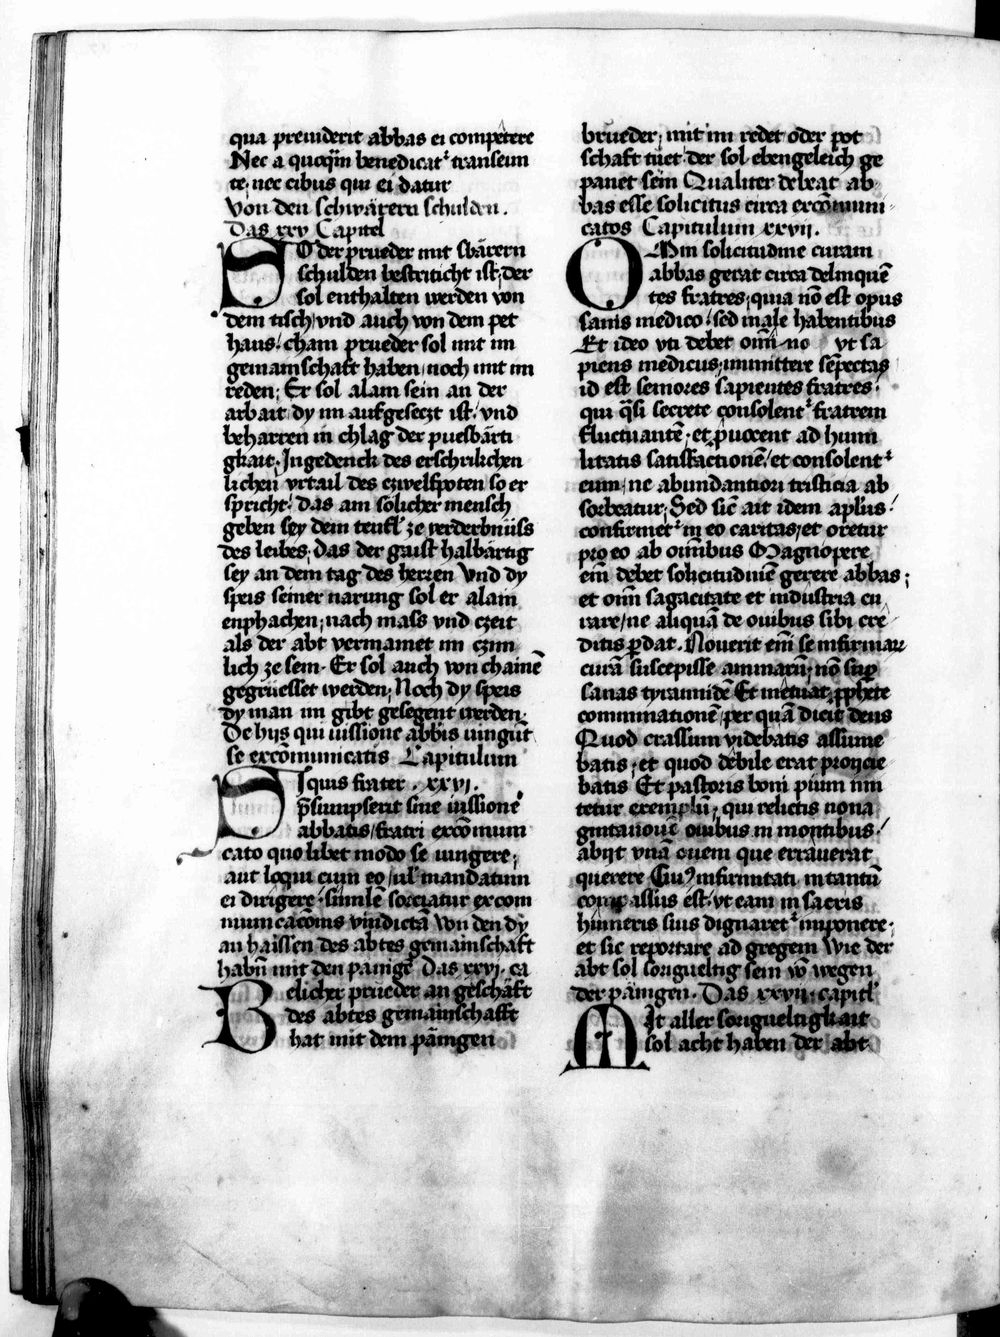 qua preuiderit abbas ei competere
Nec a quoqͣm benedicatᷣ transeun
te, nec cibus qui ei datur
Von den schwärern schulden.
Das xxv Capitel
SO der prueder mit swärern
schulden bestrüticht ist, der
sol enthalten werden von
dem tisch, vnd auch von dem pet
haus, cham prueder sol mit im
gemainschaft haben, noch mit im
reden, Er sol alain sein an der
arbait, dy im aufgeseczt ist, vnd
beharren in chlag der puesbärti
gkait. Ingedenck des erschrikchen
lichen vrtail des czwelfpoten, so er
spricht, das am solicher mensch
geben sey dem teufl ze verderbnüss
des leibes, das der gaist halbärtig
sey an dem tag des herren Vnd dy
speis seiner narung sol er alain
enphachen, nach mass vnd czeit
als der abt vermainet im czim
lich ze sein. Er sol auch von chainē
gegrüesset werden, Noch dy speis
dy man im gibt gesegent werden.
De hijs qui iussione abbīs iungūt
se excōmunicatis Capitulum
SIquis frater . xxvi .
p̄sumpserit sine iussione
abbatis, fratri excōmuni
cato quolibet modo se iungere,
aut loqui cum eo, ul̄ mandatum
ei dirigere, similē sorciatur excom
municacōnis vindictā Von den dy
an haissen des abtes gemainschaft
habn̄ mit den pänigē Das xxvi. ca
BElicher prueder an geschäft
des abtes gemainschafft
hat mit dem pänigen
brueder, mit im redet oder pot
schaft tüet, der sol ebengeleich ge
panet sein Qualiter debeat ab
bas esse solicitus circa excōmuni
catos Capitulum xxvii.
OMni solicitudine curam
abbas gerat circa delinquē
tes fratres, quia nō est opus
sanis medico, sed male habentibus
Et ideo vti debet om̄i mo vt sa
piens medicus, immittere sempectas
id est seniores sapientes fratres,
qui q̄si secrete consolentᷣ fratrem
fluctuantē, et p̱uocent ad humi
litatis satisfactionē, et consolentᷣ
eum, ne abundantiori tristicia ab
sorbeatur, Sed sic̄ ait idem apl̄us,
confirmetᷣ in eo caritas, et oretur
pro eo ab om̄ibus Magnopere
em̄ debet solicitudinē gerere abbas,
et om̄i sagacitate et industria cu
rare, ne aliquā de ouibus sibi cre
ditis p̱dat. Nouerit em̄ se infirmar
curā suscepisse animarū, nō sup̱
sanas tyrannidē Et metuat, p̱phete
comminationē, per quā dicit deus
Quod crassum videbatis assume
batis, et quod debile erat proijcie
batis Et pastoris boni pium imi
tetur exemplū, qui relictis nona
gintanouē ouibus in montibus,
abijt vnā ouem que errauerat
querere Cuiꝰ infirmitati intantū
compassus est, vt eam in sacris
humeris suis dignaretᷣ imponere,
et sic reportare ad gregem Wie der
abt sol sorigueltig sein vō wegen
der pänigen. Das xxvii. capitl̄
MIt aller sorigueltigkait
sol acht haben der abt